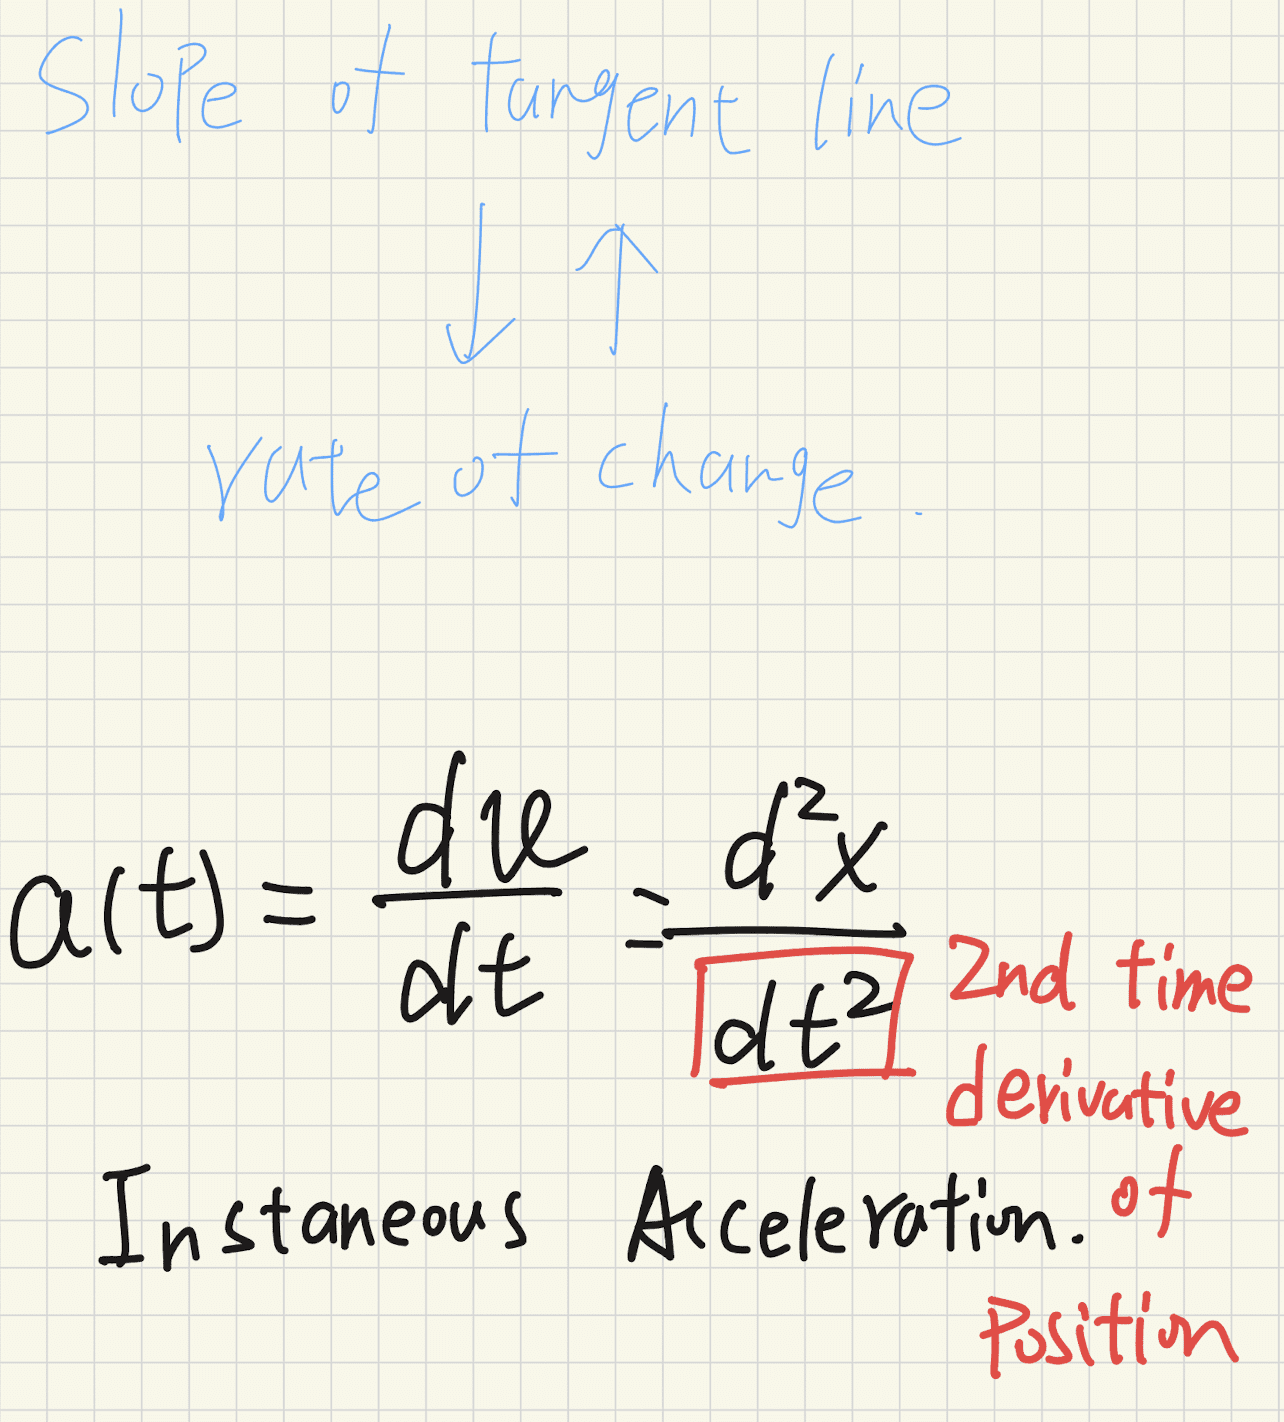 Slope of tangent line
↓ ↑
rate of change.
a(t) = dv/dt = d²x/dt²
2nd time
derivative
of
position
Instaneous Acceleration.